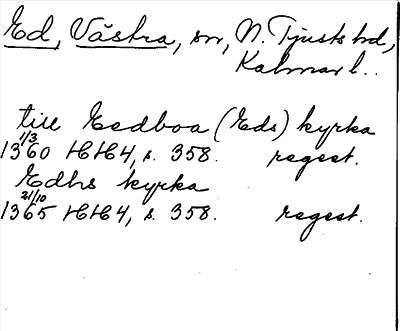 Ed, Västra, sn, N. Tjusts hd,
Kalmar l..
till Eedboa (Eds) kyrka
1360 1/3 HH4, s. 358. regest.
Edhs kyrka
1365 21/10 HH4, s. 358. regest.